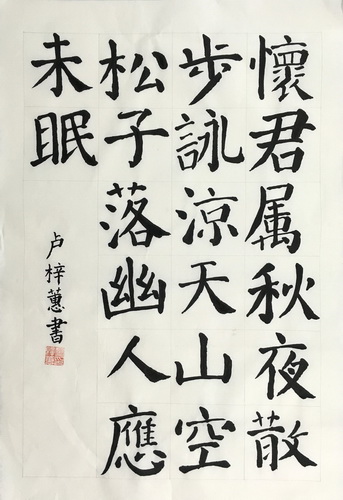 懷君属秋夜散
步詠涼天山空
松子落幽人應
未眠
卢梓蕙書